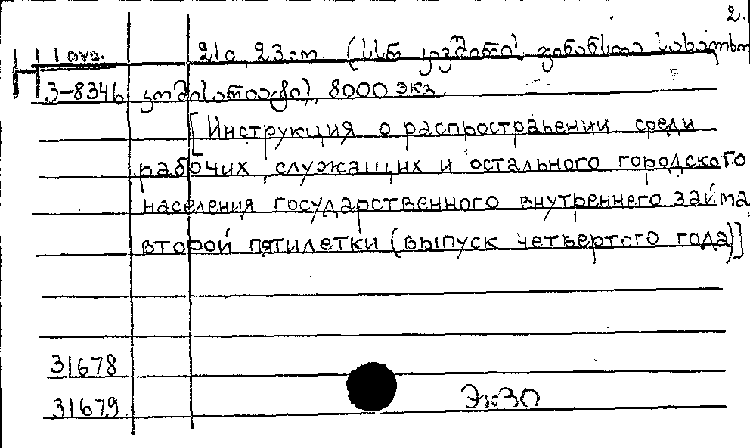 2.
21с. 23სთ. (სსრ კავშირის ფინანსთა სახალხო
3-8346 კომისარიატი) 8000 экз
[Инструкция о распространении среди
рабочих, служащих и остального городского
населения государственного внутреннего займа
второй пятилетки (выпуск четвертого года)]
31678
31679 Эк30